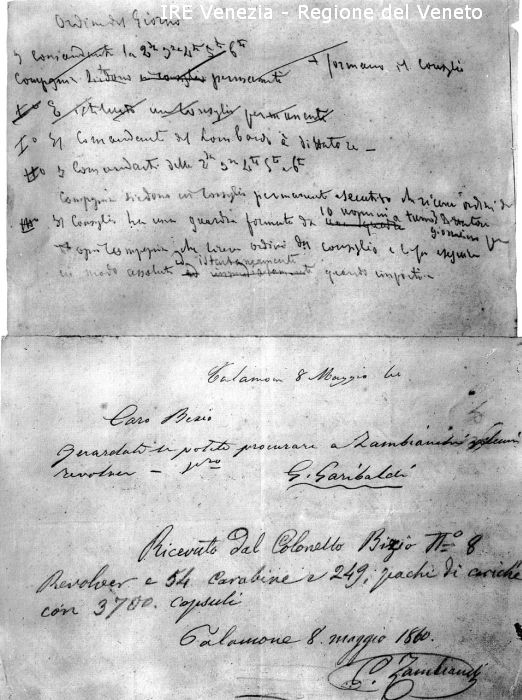 IRE Venezia - Regione del Veneto
Ordine del Giorno
I comandanti la 2da 3za 4ta 5ta 6ta
Compagnia siedono permanenti + formano il Consiglio
È istituito un Consiglio permanente
I° Il Comandante del Lombardo è dittatore -
II° I Comandanti delle 2da 3za 4ta 5ta e 6ta
Compagnia siedono in Consiglio permanente esecutivo che riceve ordini
III° Il Consiglio ha una guardia formata da 10 uomini a turno
ogni Compagnia che riceve ordini dal consiglio e
istantaneamente
in modo assoluto quando
Talamone 8 Maggio
Caro Bixio
Guardate se potete procurare a Zambianchi
revolver -
G. Garibaldi
Ricevuto dal Colonello Bixio N.o 8
Revolver e 54 carabine e 249, pachi di cariche
con 3700. capsuli
Talamone 8. maggio 1860.
Zambianchi